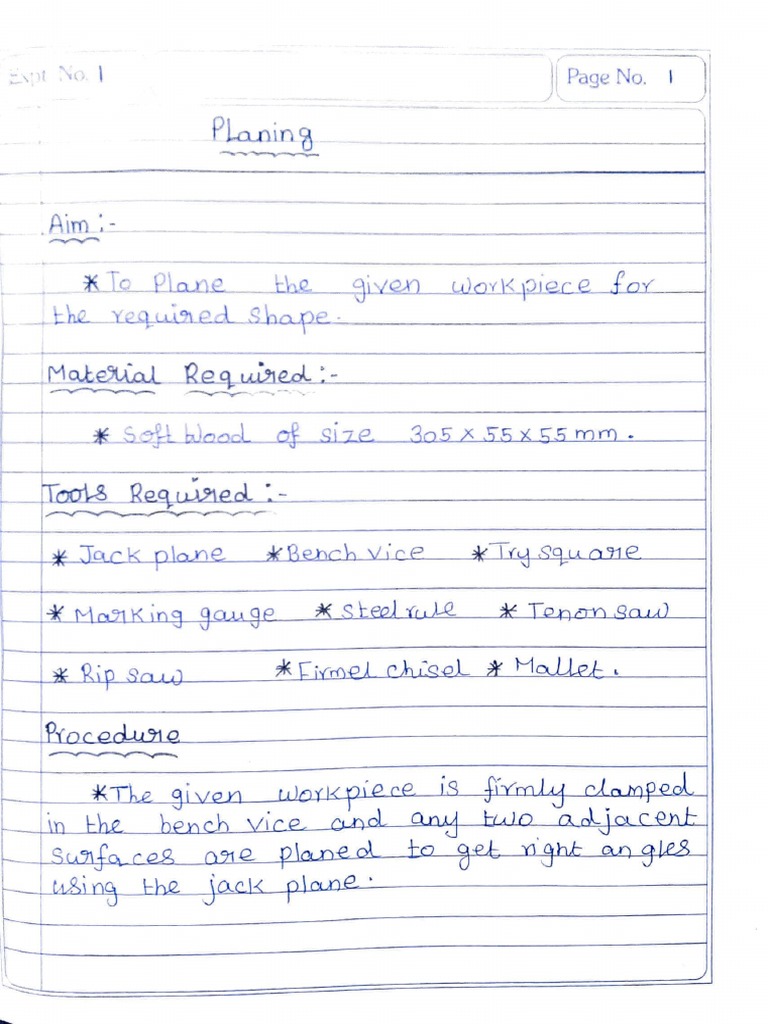 Expt. No. 1
Page No. 1
Planing
Aim :-
* To Plane the given workpiece for
the required shape.
Material Required :-
* Soft Wood of size 305 x 55 x 55 mm.
Tools Required :-
* Jack plane * Bench vice * Try square
* Marking gauge * Steel rule * Tenon saw
* Rip saw * Firmel chisel * Mallet.
Procedure
* The given workpiece is firmly clamped
in the bench vice and any two adjacent
surfaces are planed to get right angles
using the jack plane.